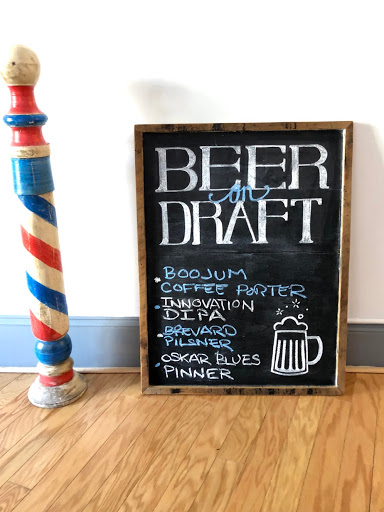 BEER
on
DRAFT
BOOJUM
COFFEE PORTER
INNOVATION
DIPA
BREVARD
PILSNER
OSKAR BLUES
PINNER